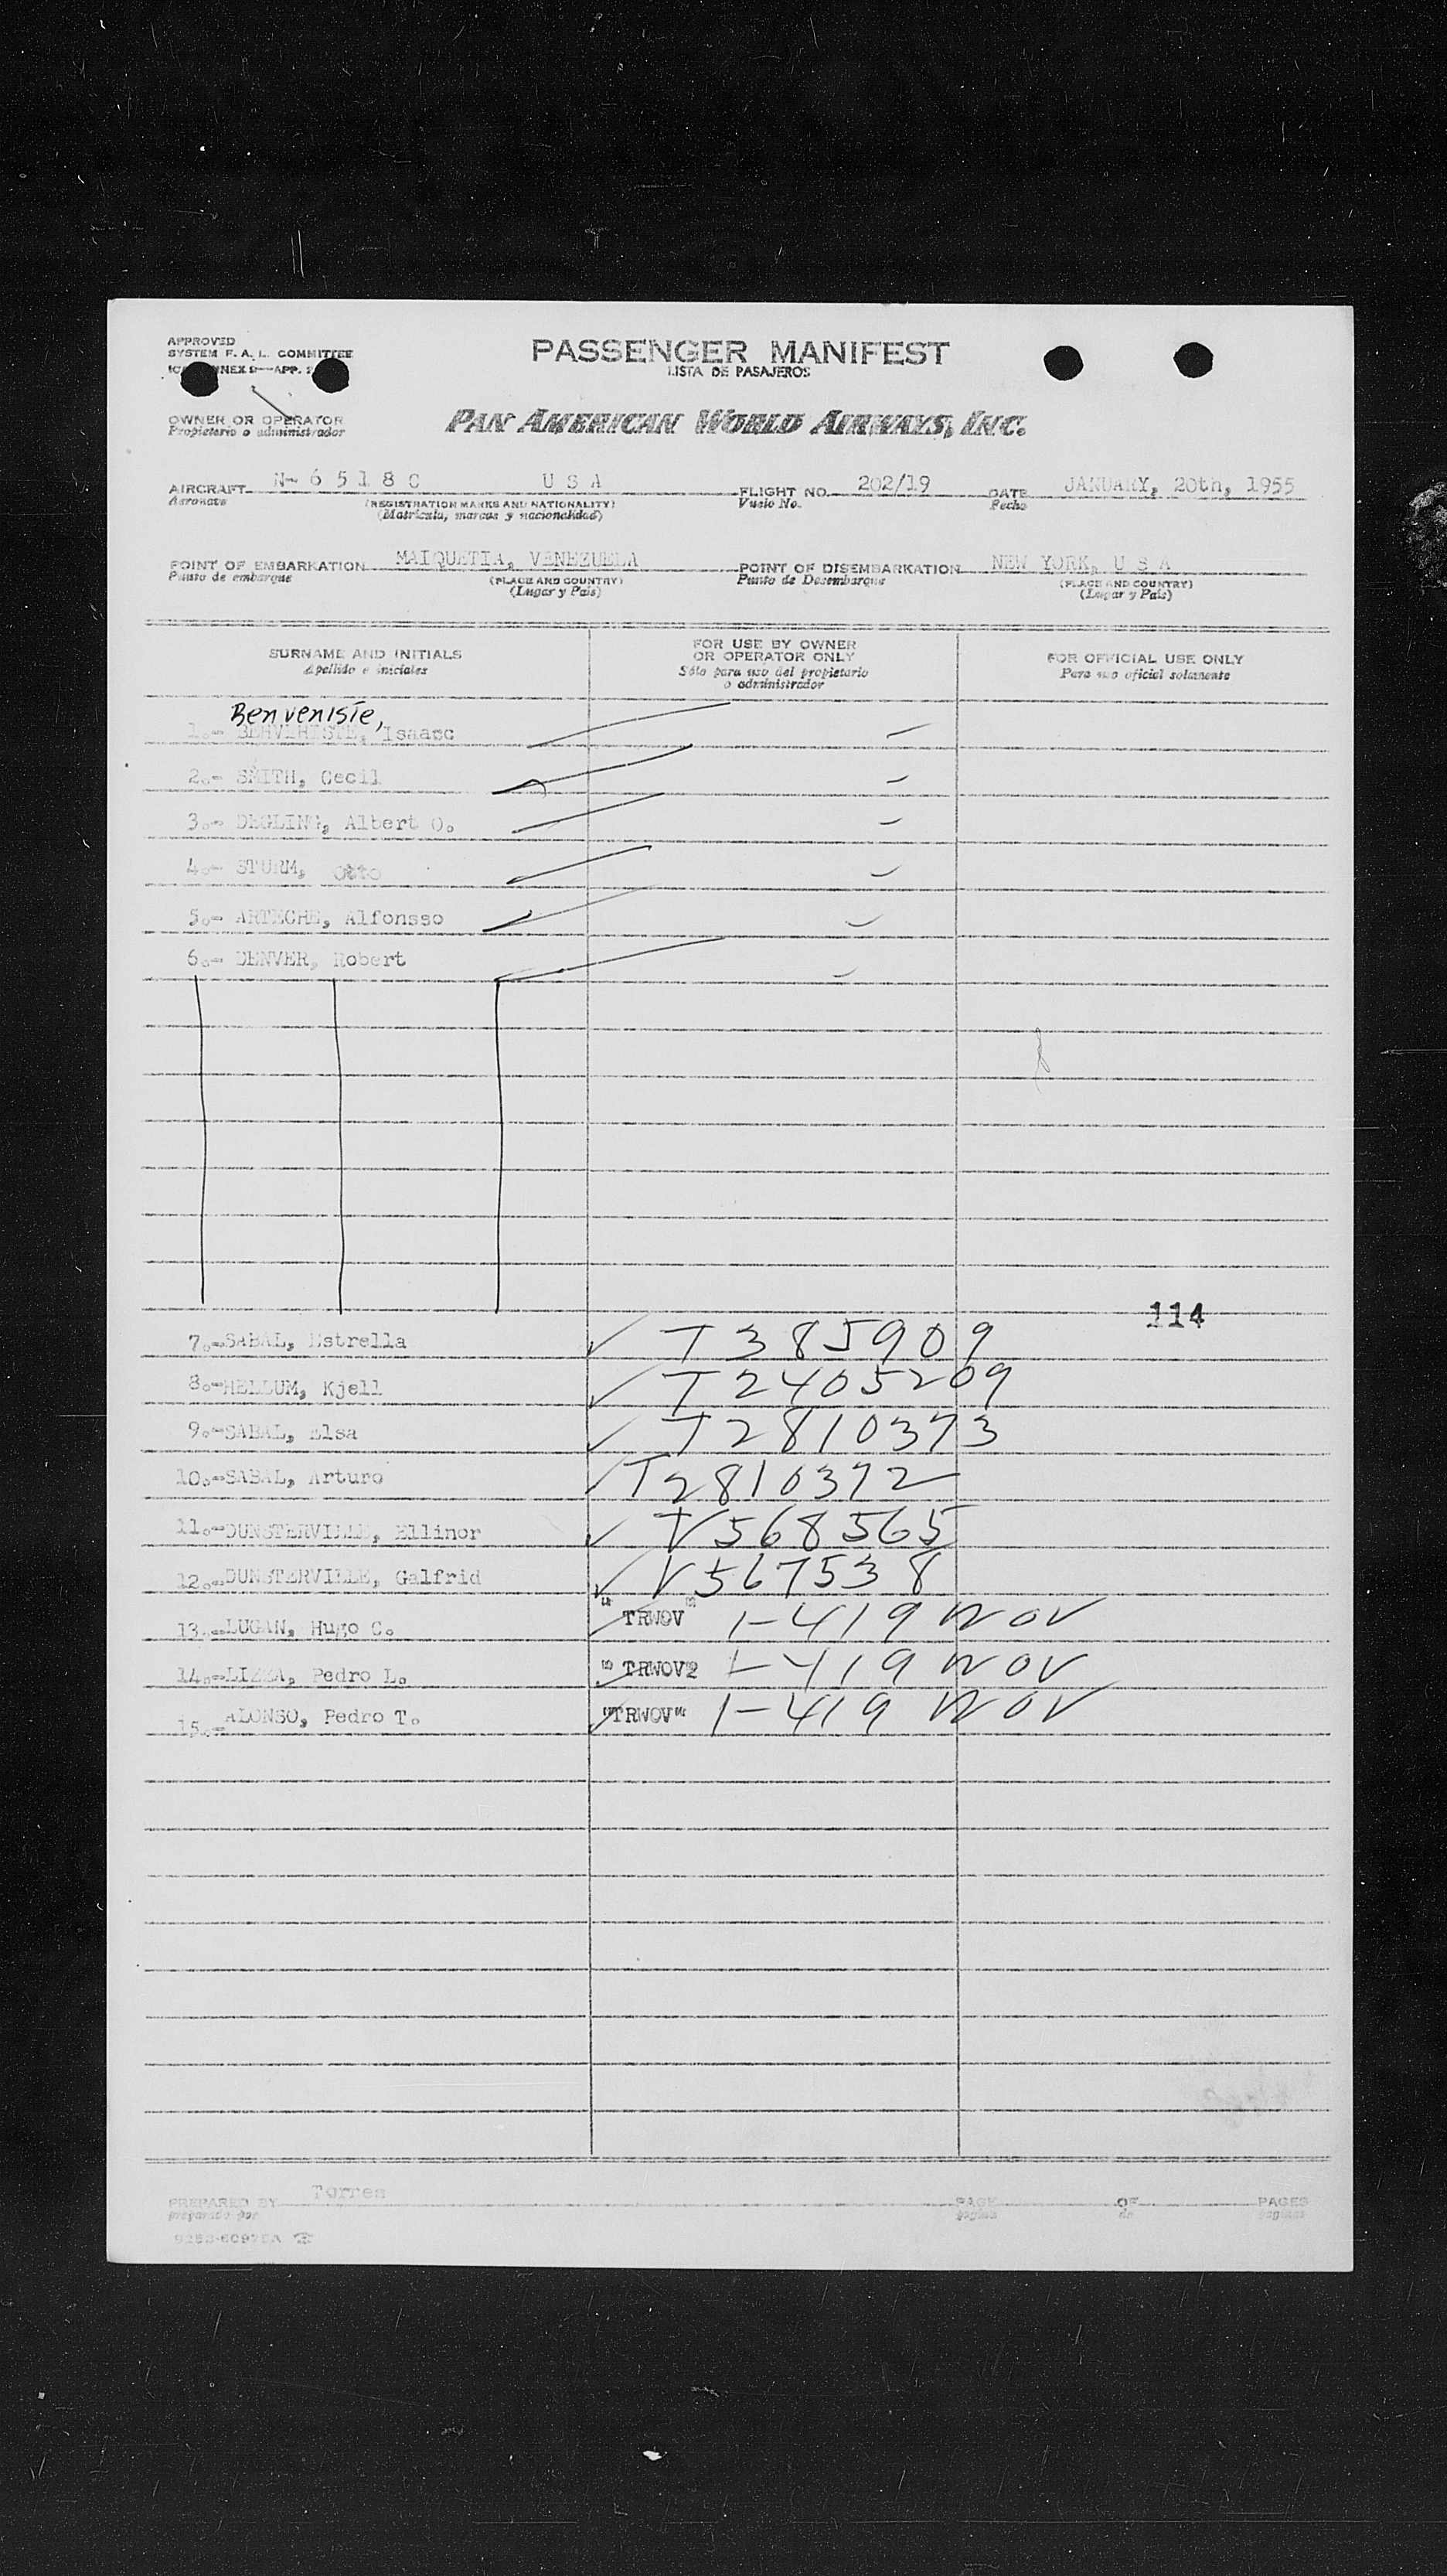 APPROVED
SYSTEM F. A. L. COMMITTEE
NEX 9—APP.
PASSENGER MANIFEST
LISTA DE PASAJEROS
OWNER OR OPERATOR
Propietario o administrador
PAN AMERICAN WORLD AIRWAYS, INC.
AIRCRAFT N- 6 5 1 8 C U S A FLIGHT NO. 202/19 DATE JANUARY, 20th, 1955
Aeronave (REGISTRATION MARKS AND NATIONALITY) Vuelo No. Fecha
(Matrícula, marcas y nacionalidad)
POINT OF EMBARKATION MAIQUETIA, VENEZUELA POINT OF DISEMBARKATION NEW YORK, U S A
Punto de embarque (PLACE AND COUNTRY) Punto de Desembarque (PLACE AND COUNTRY)
(Lugar y País) (Lugar y País)
SURNAME AND INITIALS
Apellido e iniciales
FOR USE BY OWNER
OR OPERATOR ONLY
Sólo para uso del propietario
o administrador
FOR OFFICIAL USE ONLY
Para uso oficial solamente
Benveniste,
1.- Isaac
2.- SMITH, Cecil
3.- DEGLING, Albert O.
4.- STURM, Otto
5.- ARTECHE, Alfonsso
6.- DENVER, Robert
114
7.-SABAL, Estrella T 385909
8.-HELLUM, Kjell T 2405209
9.-SABAL, Elsa T 2810373
10.-SABAL, Arturo T2810372
11.-DUNSTERVILLE, Ellinor V568565
12.-DUNSTERVILLE, Galfrid V567538
13.-LUGAN, Hugo C. "TRWOV" 1-419 WOV
14.-LIZZA, Pedro L. "TRWOV2 1-419 WOV
15.-ALONSO, Pedro T. "TRWOV" 1-419 WOV
PREPARED BY Torres PAGE OF PAGES
preparado por página de páginas